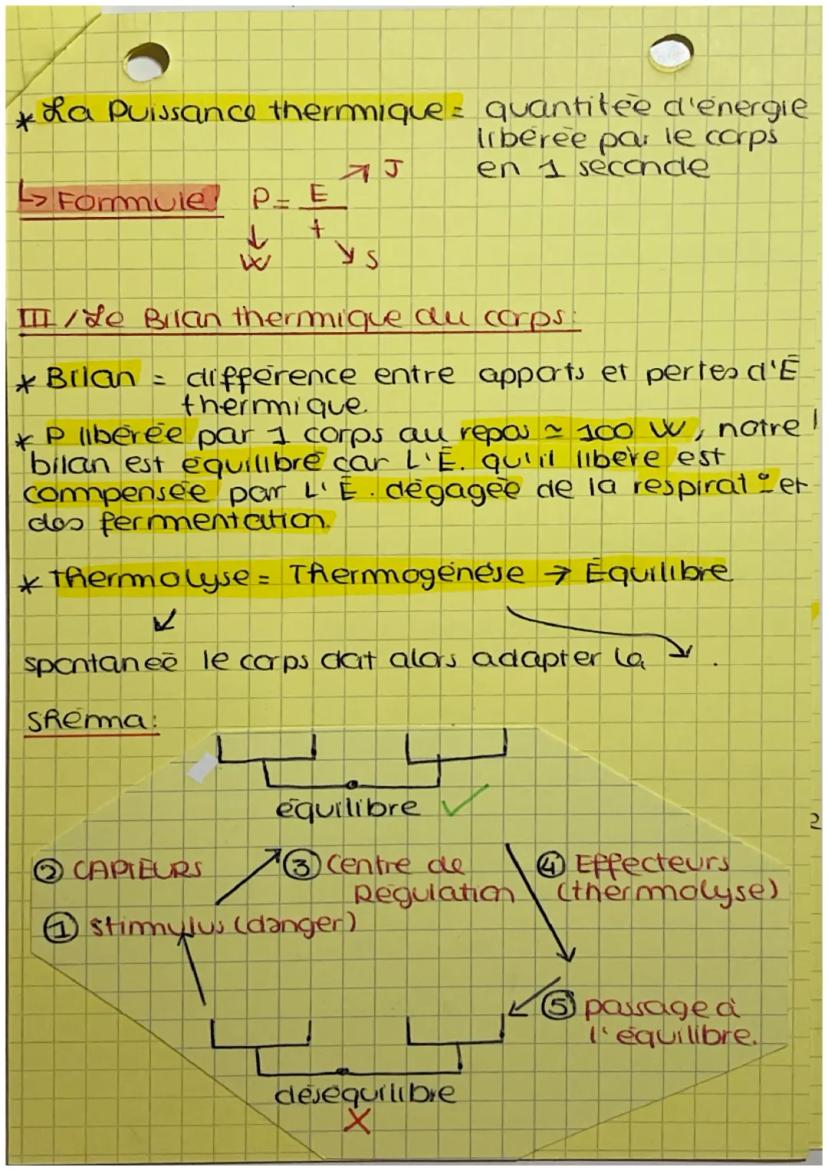 * La Puissance thermique = quantitée d'énergie
libérée par le corps
en 1 seconde
↳ Formule! P = E/t → J
W
s
III / Le Bilan thermique du corps:
* Bilan = différence entre apports et pertes d'É
thermique.
* P libérée par 1 corps au repos ≃ 100 W, notre
bilan est équilibré car L'É. qu'il libère est
compensée par L'É. dégagée de la respirat° et
des fermentation.
* Thermolyse = Thermogénèse → Équilibre
spontanée le corps doit alors adapter la ↘ .
Shéma:
équilibre ✓
② CAPTEURS
③ Centre de
Régulation
④ Effecteurs
(thermolyse)
① stimulus (danger)
⑤ passage à
l'équilibre.
déséquilibre
X
2